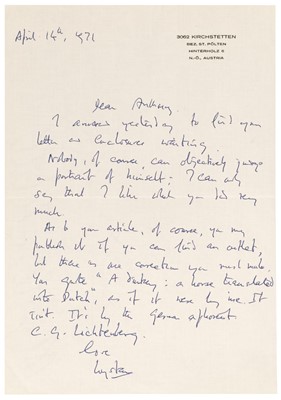 April 14th, 1971
3062 KIRCHSTETTEN
BEZ. ST. PÖLTEN
HINTERHOLZ 6
N.-Ö., AUSTRIA
Dear Anthony,
I arrived yesterday to find your
letter and enclosures waiting.
Nobody, of course, can objectively judge
a portrait of himself: I can only
say that I like what you did very
much.
As to your article, of course, you may
publish it if you can find an outlet,
but there is one correction you must make.
You quote "A donkey: a horse translated
into Dutch", as if it were by me. It
isn't. It's by the German aphorist
C. G. Lichtenberg.
Love
Wystan